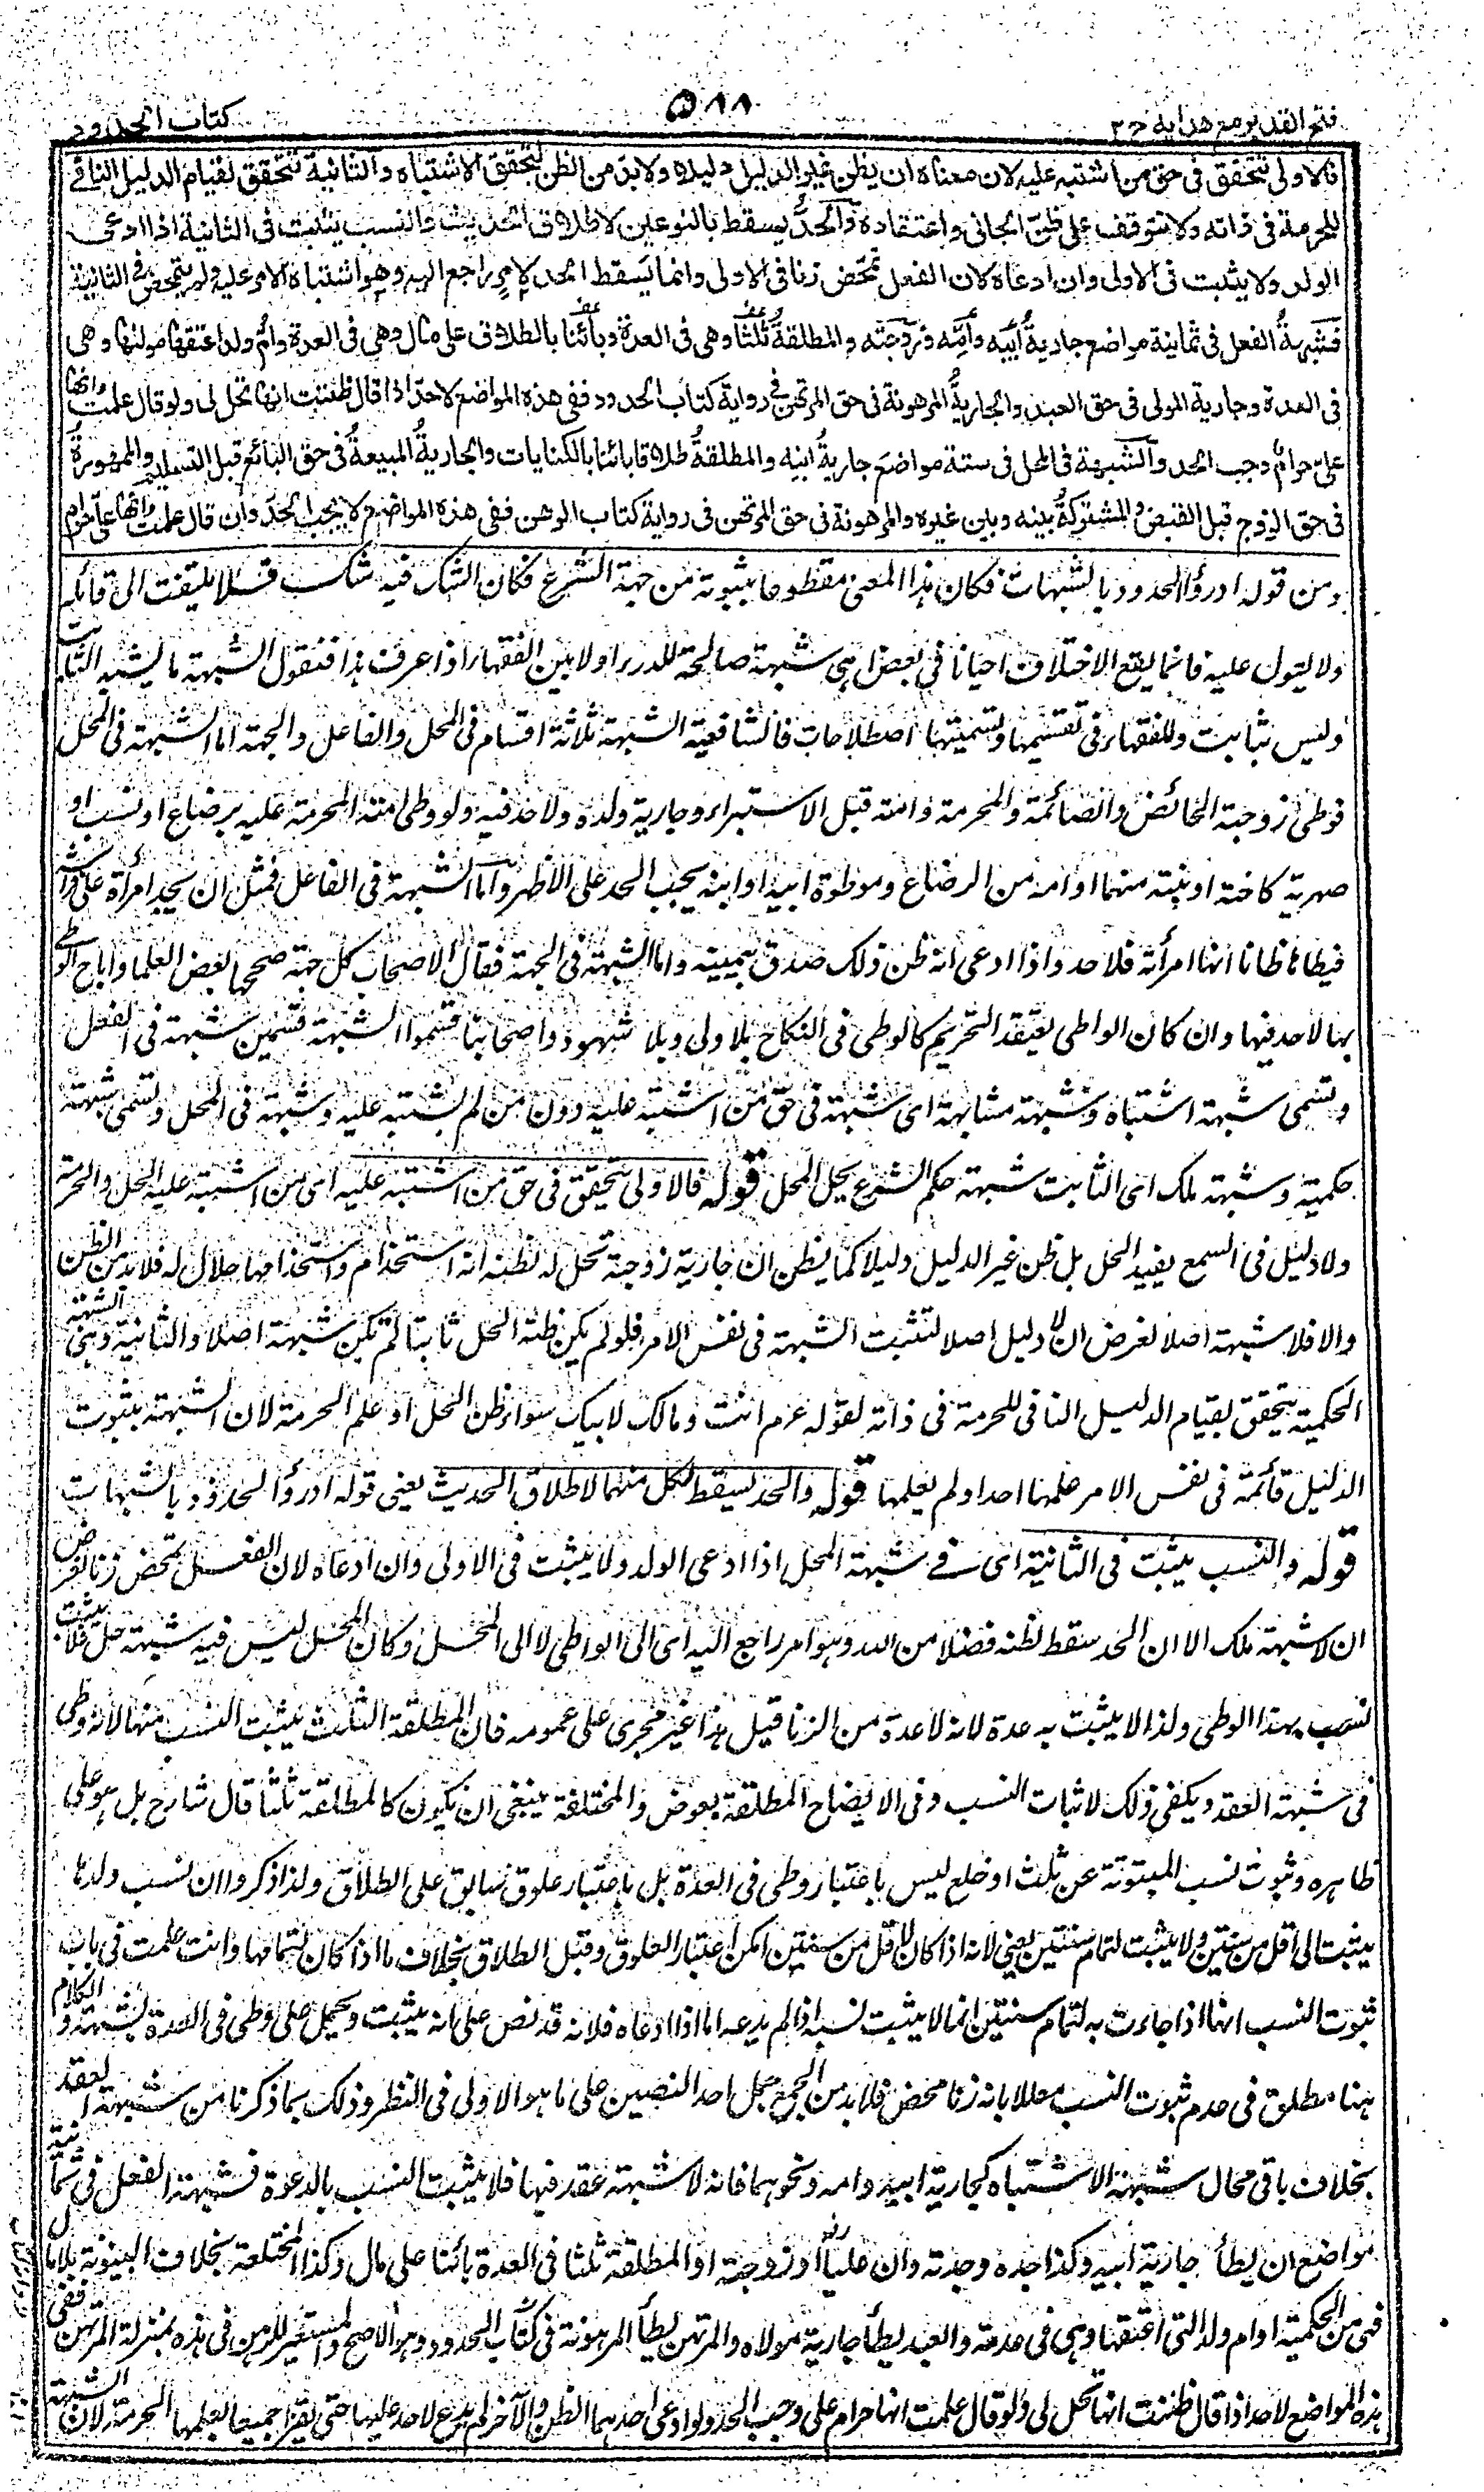 فتح القدير مع هدايه ج ٢
٥١١
كتاب الحدود
فالاولى تتحقق فى حق من اشتبه عليه لان معناه ان يظن غير الدليل دليلا ولابد من الظن لتحقق الاشتباه والثانية تتحقق لقيام الدليل النافى
للحرمة فى ذاته ولا تتوقف على ظن الجانى واعتقاده والحد يسقط بالنوعين لاطلاق الحديث والنسب يثبت فى الثانية اذا ادعى
الولد ولا يثبت فى الاولى وان ادعاه لان الفعل تمحض زنا فى الاولى وانما يسقط الحد لامر راجع اليه وهو اشتباه الامر عليه ولم يتمحض فى الثانية
فشبهة الفعل فى ثمانية مواضع جارية ابيه وامه وزوجته والمطلقة ثلثا وهى فى العدة وبائنا بالطلاق على مال وهى فى العدة وام ولد اعتقها مولاها وهى
فى العدة وجارية المولى فى حق العبد والجارية المرهونة فى حق المرتهن فى رواية كتاب الحدود ففى هذه المواضع لا حد اذا قال ظننت انها تحل لى ولو قال علمت انها
على حرام وجب الحد والشبهة فى المحل فى ستة مواضع جارية ابنه والمطلقة طلاقا بائنا بالكنايات والجارية المبيعة فى حق البائع قبل التسليم والممهورة
فى حق الزوج قبل القبض والمشتركة بينه وبين غيره والمرهونة فى حق المرتهن فى رواية كتاب الرهن ففى هذه المواضع لا يجب الحد وان قال علمت انها على حرام
ومن قوله ادرؤا الحدود بالشبهات فكان هذا المعنى مقطوعا بثبوته من جهة الشرع فكان الشك فيه شك فلا يلتفت الى قائله
ولا يعول عليه فانما يقع الاختلاف احيانا فى بعض اهى شبهة صالحة للدرء اولا بين الفقهاء اذا عرفت هذا فنقول الشبهة ما يشبه الثابت
وليس بثابت وللفقهاء فى تقسيمها وتسميتها اصطلاحات فالشافعية الشبهة ثلاثة اقسام فى المحل والفاعل والجهة اما الشبهة فى المحل
فوطى زوجته الحائض والصائمة والمحرمة وامته قبل الاستبراء وجارية ولده ولا حد فيه ولو وطى امته المحرمة عليه برضاع او نسب او
صهرية كاخته او بنته منهما او امه من الرضاع وموطوة ابيه او ابنه يجب الحد على الاظهر واما الشبهة فى الفاعل فمثل ان يجد امرأة على فراشه
فيطاها ظانا انها امرأته فلا حد واذا ادعى انه ظن ذلك صدق بيمينه واما الشبهة فى الجهة فقال الاصحاب كل جهة صححها بعض العلما واباح الوطى
بها لا حد فيها وان كان الواطى يعتقد التحريم كالوطى فى النكاح بلا ولى وبلا شهود واصحابنا قسموا الشبهة قسمين شبهة فى الفعل
وتسمى شبهة اشتباه وشبهة مشابهة اى شبهة فى حق من اشتبه عليه دون من لم يشتبه عليه وشبهة فى المحل وتسمى شبهة
حكمية وشبهة ملك اى الثابت شبهة حكم الشرع بحل المحل قوله فالاولى تتحقق فى حق من اشتبه عليه اى من اشتبه عليه الحل والحرمة
ولا دليل فى السمع يفيد الحل بل ظن غير الدليل دليلا كما يظن ان جارية زوجته تحل له لظنه انه استخدام واستخدامها حلال له فلابد من الظن
والا فلا شبهة اصلا لفرض ان لا دليل اصلا لتثبت الشبهة فى نفس الامر فلو لم يكن ظنه الحل ثابتا لم تكن شبهة اصلا والثانية وهى الشبهة
الحكمية تتحقق بقيام الدليل النافى للحرمة فى ذاته لقوله عم انت ومالك لابيك سواء ظن الحل او علم الحرمة لان الشبهة بثبوت
الدليل قائمة فى نفس الامر علمها احد او لم يعلمها قوله والحد يسقط لكل منهما لاطلاق الحديث يعنى قوله ادرؤا الحدود بالشبهات
قوله والنسب يثبت فى الثانية اى فى شبهة المحل اذا ادعى الولد ولا يثبت فى الاولى وان ادعاه لان الفعل تمحض زنا لفرض
ان لا شبهة ملك الا ان الحد سقط لظنه فضلا من الله وهو امر راجع اليه اى الى الواطى لا الى المحل وكان المحل ليس فيه شبهة حل فلا يثبت
نسب بهذا الوطى ولذا لا يثبت به عدة لانه لا عدة من الزنا قيل هذا غير مجرى على عمومه فان المطلقة الثلث يثبت النسب منها لانه وطى
فى شبهة العقد ويكفى ذلك لاثبات النسب وفى الايضاح المطلقة بعوض والمختلعة ينبغى ان تكون كالمطلقة ثلثا قال شارح بل هو على
ظاهره وثبوت نسب المبتوتة عن ثلث او خلع ليس باعتبار وطى فى العدة بل باعتبار علوق سابق على الطلاق ولذا ذكروا ان نسب ولدها
يثبت الى اقل من سنتين ولا يثبت لتمام سنتين يعنى لانه اذا كان لاقل من سنتين امكن اعتبار العلوق قبل الطلاق بخلاف ما اذا كان لتمامها وانت علمت فى باب
ثبوت النسب انها اذا جاءت به لتمام سنتين انما لا يثبت نسبه اذا لم يدعه اما اذا ادعاه فلانه قد نص على انه يثبت ويحمل على وطى فى العدة لشبهة والكلام
هنا مطلق فى عدم ثبوت النسب معللا بانه زنا محض فلابد من الجمع بحمل احد النصين على ما هو الاولى فى النظر وذلك بما ذكرنا من شبهة العقد
بخلاف باقى محال شبهة الاشتباه كجارية ابيه وامه ونحوهما فانه لا شبهة عقد فيها فلا يثبت النسب بالدعوة فشبهة الفعل فى ثمانية
مواضع ان يطأ جارية ابيه وكذا جده وجدته وان عليا او زوجته او المطلقة ثلثا فى العدة بائنا على مال وكذا المختلعة بخلاف البينونة بلا مال
فهى من الحكمية او ام ولد التى اعتقها وهى فى عدته والعبد يطأ جارية مولاه والمرتهن يطأ المرهونة فى كتاب الحدود وهو الاصح والمستعير للرهن فى هذه بمنزلة المرتهن ففى
هذه المواضع لا حد اذا قال ظننت انها تحل لى ولو قال علمت انها حرام على وجب الحد ولو ادعى احدهما الظن والآخر لم يدع لا حد عليهما حتى يقرا جميعا بعلمهما الحرمة لان الشبهة